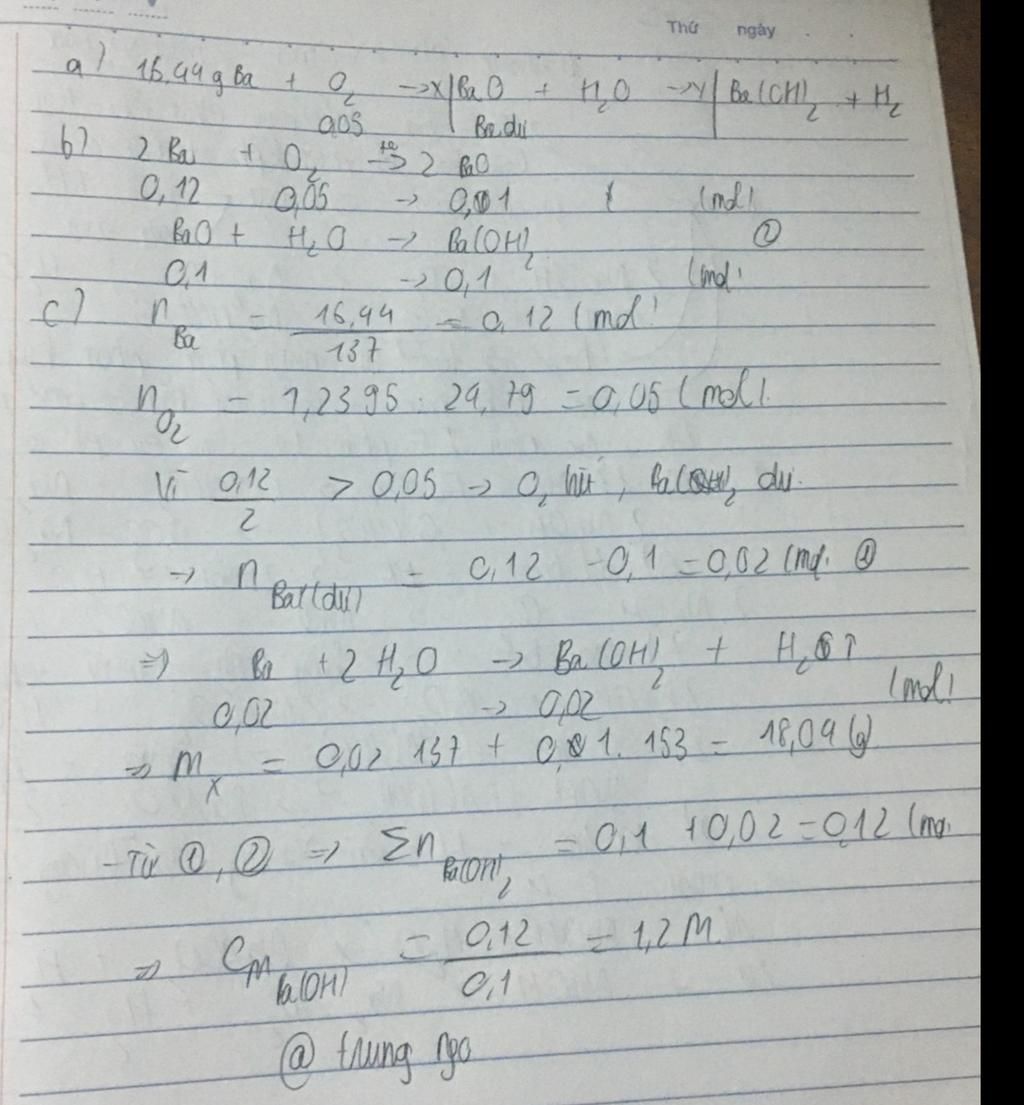 Thứ ngày
a) 16,44g Ba + O₂ → X | BaO + H₂O → Y | Ba(OH)₂ + H₂
0,05 Ba dư
b) 2 Ba + O₂ →(t°) 2 BaO
0,12 0,05 → 0,1 (mol)
BaO + H₂O → Ba(OH)₂ ②
0,1 → 0,1 (mol)
c) n Ba = 16,44/137 = 0,12 (mol)
n O₂ = 1,2395 : 24,79 = 0,05 (mol).
Vì 0,12/2 > 0,05 → O₂ hết, Ba(OH)₂ dư.
→ n Ba (dư) = 0,12 - 0,1 = 0,02 (mol. ①
⇒ Ba + 2 H₂O → Ba(OH)₂ + H₂↑
0,02 → 0,02 (mol)
⇒ m X = 0,02 137 + 0,1. 153 = 18,04 (g)
- Từ ①, ② ⇒ Σn Ba(OH)₂ = 0,1 + 0,02 = 0,12 (mol.
⇒ CM Ba(OH) = 0,12/0,1 = 1,2 M.
@ trung ngo